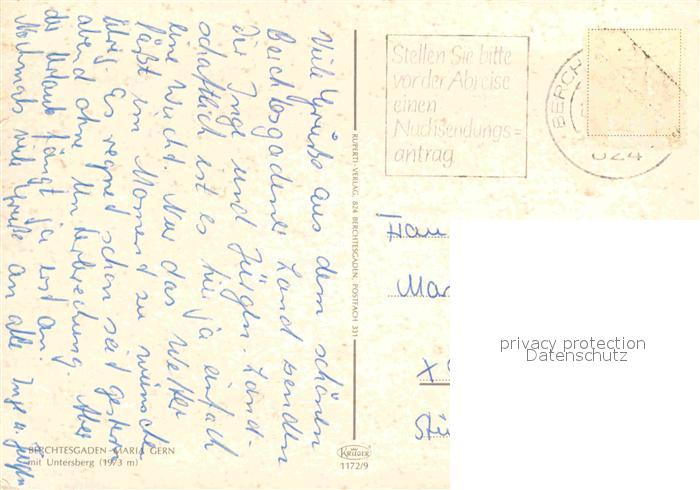 Viele Grüße aus dem schönen
Berchtesgadener Land senden
Dir Inge und Jürgen. Land-
schaftlich ist es hier ja einfach
eine Wucht. Nur das Wetter
läßt im Moment zu wünschen
übrig. Es regnet schon seit gestern
abend ohne Unterbrechung. Aber
der Urlaub fängt ja erst an.
Nochmals viele Grüße an alle Inge u. Jürgen
BERCHTESGADEN - MARIA GERN
mit Untersberg (1973 m)
RUPERTI-VERLAG, 824 BERCHTESGADEN, POSTFACH 331
KRÜGER
1172/9
Stellen Sie bitte
vor der Abreise
einen
Nachsendungs=
antrag
BERCH
824
Frau
Mar
X
privacy protection
Datenschutz